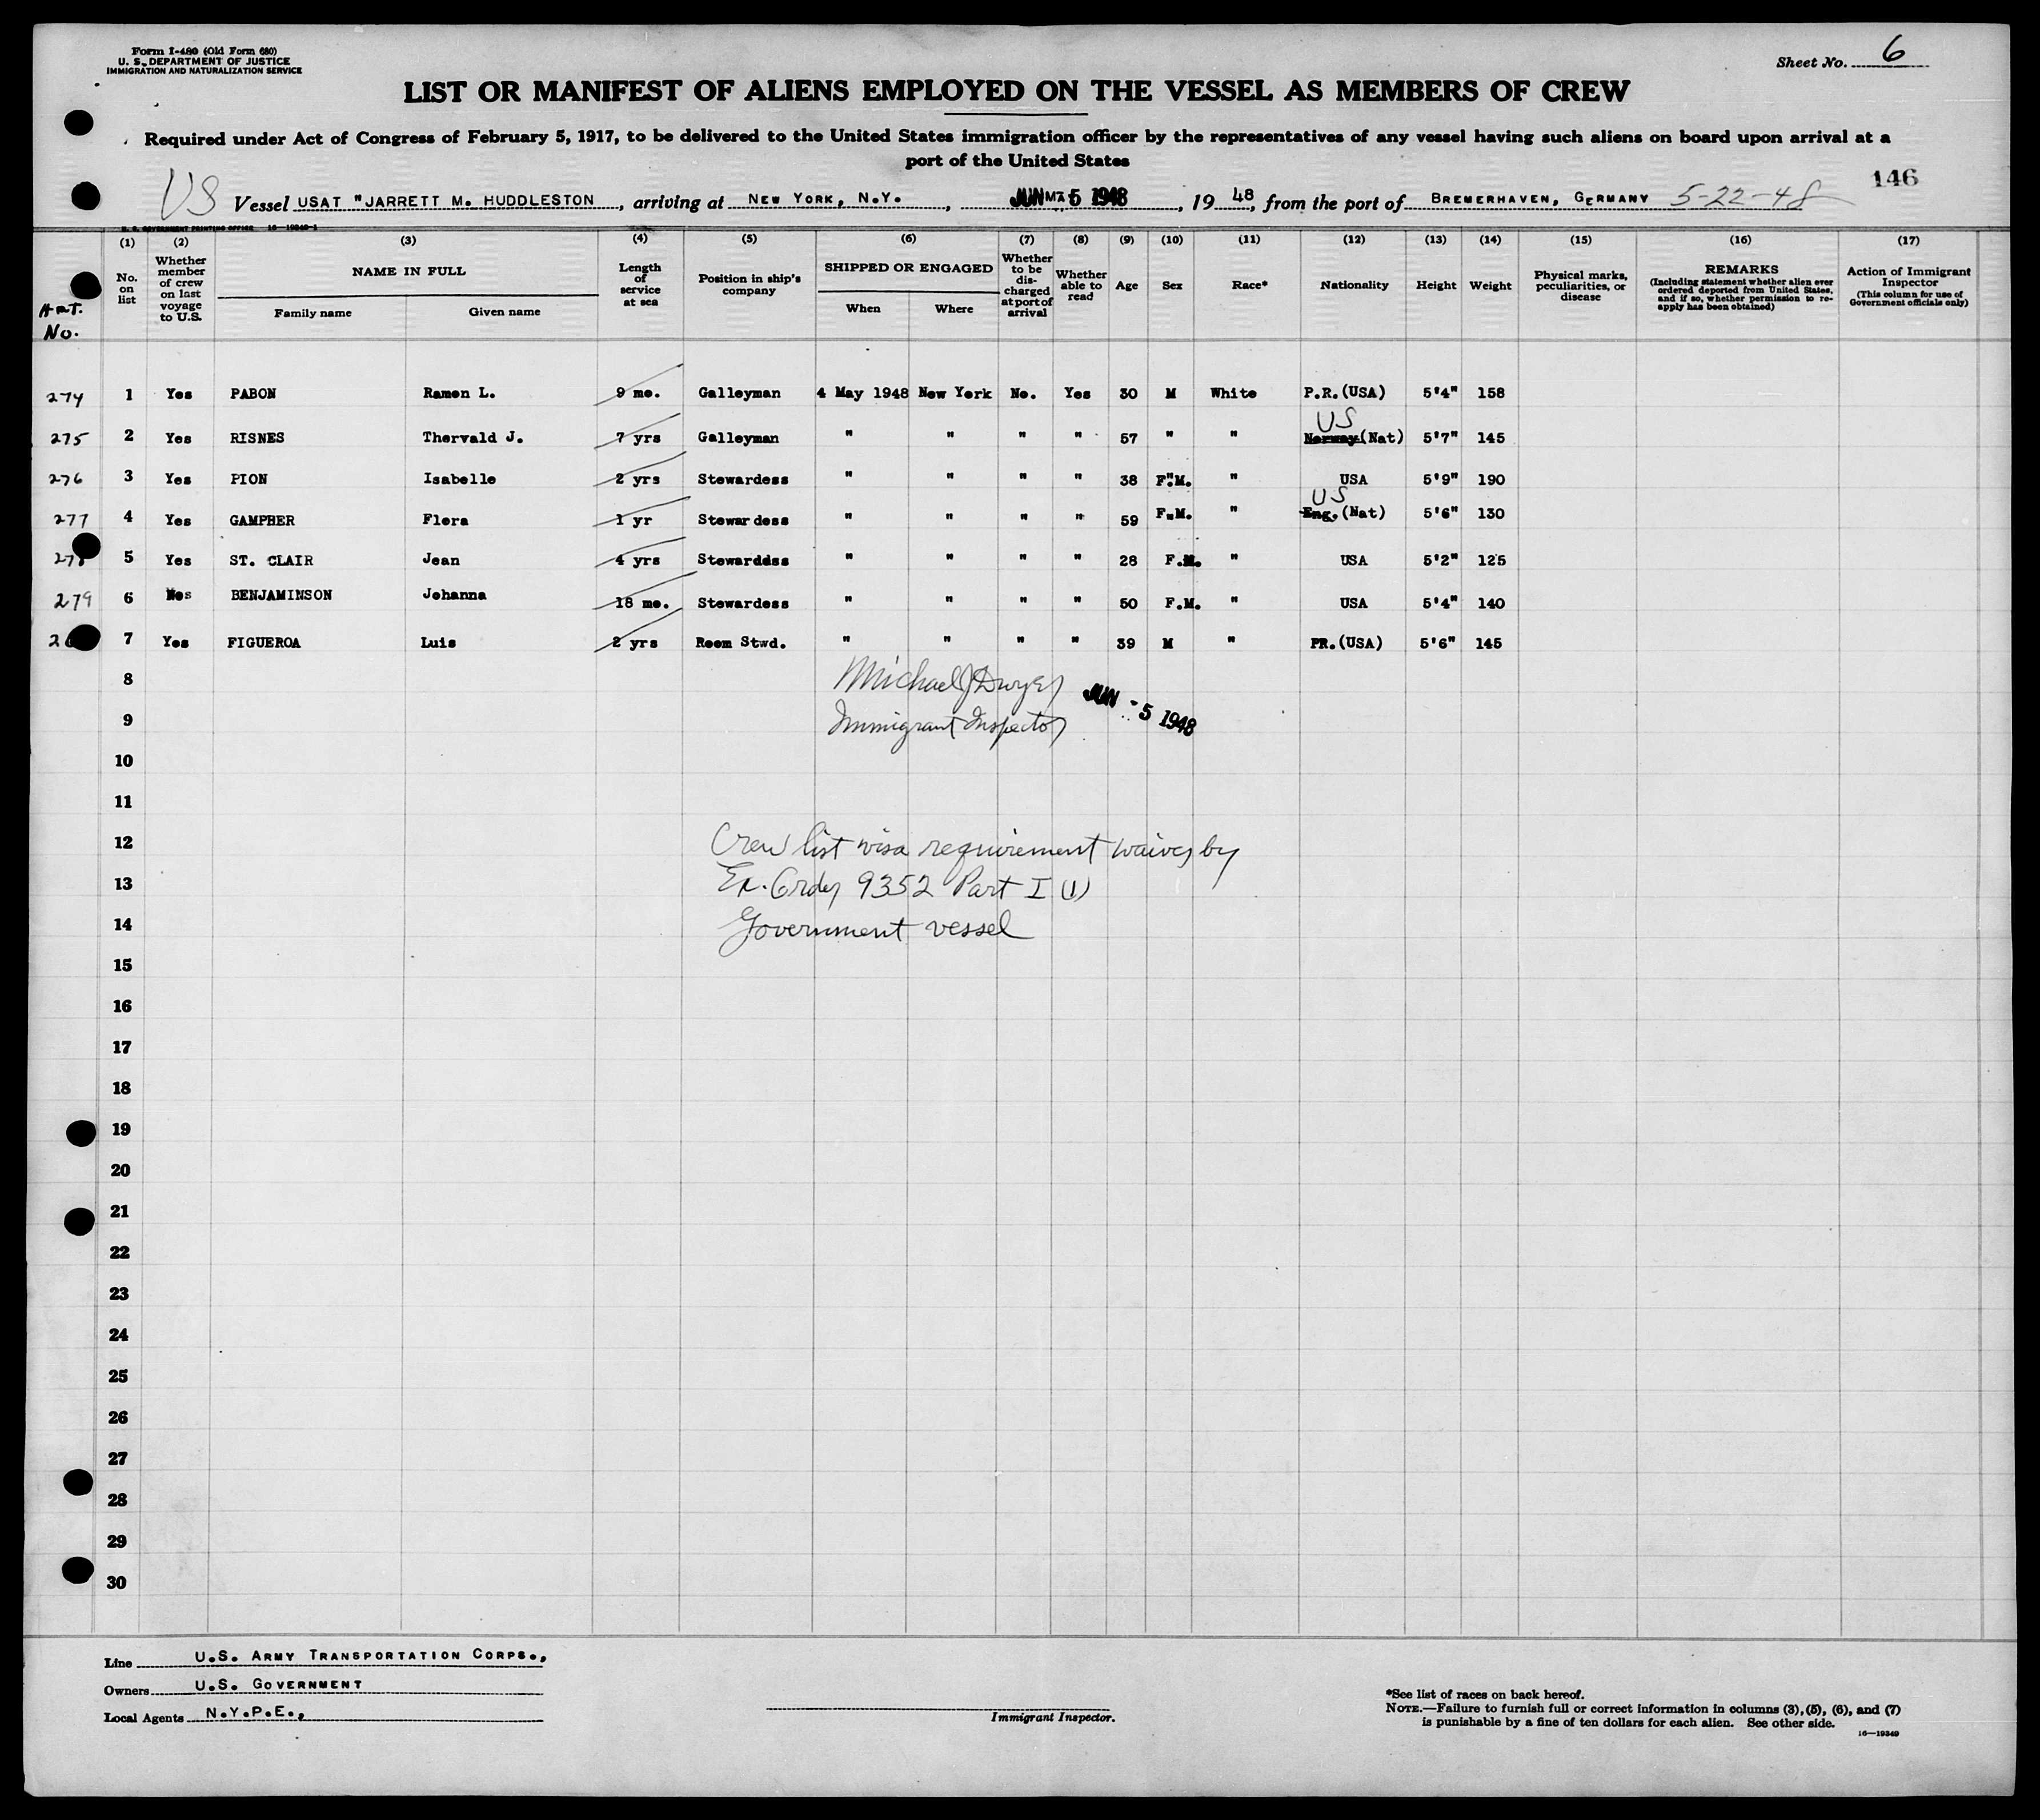 Form I-480 (Old Form 680)
U. S. DEPARTMENT OF JUSTICE
IMMIGRATION AND NATURALIZATION SERVICE
Sheet No. 6
LIST OR MANIFEST OF ALIENS EMPLOYED ON THE VESSEL AS MEMBERS OF CREW
Required under Act of Congress of February 5, 1917, to be delivered to the United States immigration officer by the representatives of any vessel having such aliens on board upon arrival at a
port of the United States
146
US Vessel USAT "JARRETT M. HUDDLESTON, arriving at NEW YORK, N.Y., JUN 5 1948, 1948, from the port of BREMERHAVEN, GERMANY 5-22-48
U. S. GOVERNMENT PRINTING OFFICE 16-19349-1
(1) (2) (3) (4) (5) (6) (7) (8) (9) (10) (11) (12) (13) (14) (15) (16) (17)
No. on list
Whether member of crew on last voyage to U.S.
NAME IN FULL
Family name Given name
Length of service at sea
Position in ship's company
SHIPPED OR ENGAGED
When Where
Whether to be discharged at port of arrival
Whether able to read
Age
Sex
Race*
Nationality
Height
Weight
Physical marks, peculiarities, or disease
REMARKS
(Including statement whether alien ever ordered deported from United States, and if so, whether permission to re-apply has been obtained)
Action of Immigrant Inspector
(This column for use of Government officials only)
No.
274 1 Yes PABON Ramon L. 9 mo. Galleyman 4 May 1948 New York No. Yes 30 M White P.R.(USA) 5'4" 158
US
275 2 Yes RISNES Thorvald J. 7 yrs Galleyman " " " " 57 " " Norway(Nat) 5'7" 145
276 3 Yes PION Isabelle 2 yrs Stewardess " " " " 38 F"M. " USA 5'9" 190
US
277 4 Yes GAMPHER Flora 1 yr Stewardess " " " " 59 F.M. " Eng.(Nat) 5'6" 130
5 Yes ST. CLAIR Jean 4 yrs Stewarddss " " " " 28 F.M. " USA 5'2" 125
279 6 BENJAMINSON Johanna 18 mo. Stewardess " " " " 50 F.M. " USA 5'4" 140
7 Yes FIGUEROA Luis 2 yrs Room Stwd. " " " " 39 M " PR.(USA) 5'6" 145
8 Michael J Dwyer JUN -5 1948
9 Immigrant Inspector
10
11
12 Crew list visa requirement waived by
13 Ex. Order 9352 Part I (1)
14 Government vessel
15
16
17
18
19
20
21
22
23
24
25
26
27
28
29
30
Line U.S. ARMY TRANSPORTATION CORPS.,
Owners U.S. GOVERNMENT
Local Agents N.Y.P.E.,
Immigrant Inspector.
*See list of races on back hereof.
NOTE.—Failure to furnish full or correct information in columns (3), (5), (6), and (7)
is punishable by a fine of ten dollars for each alien. See other side.
16—19349